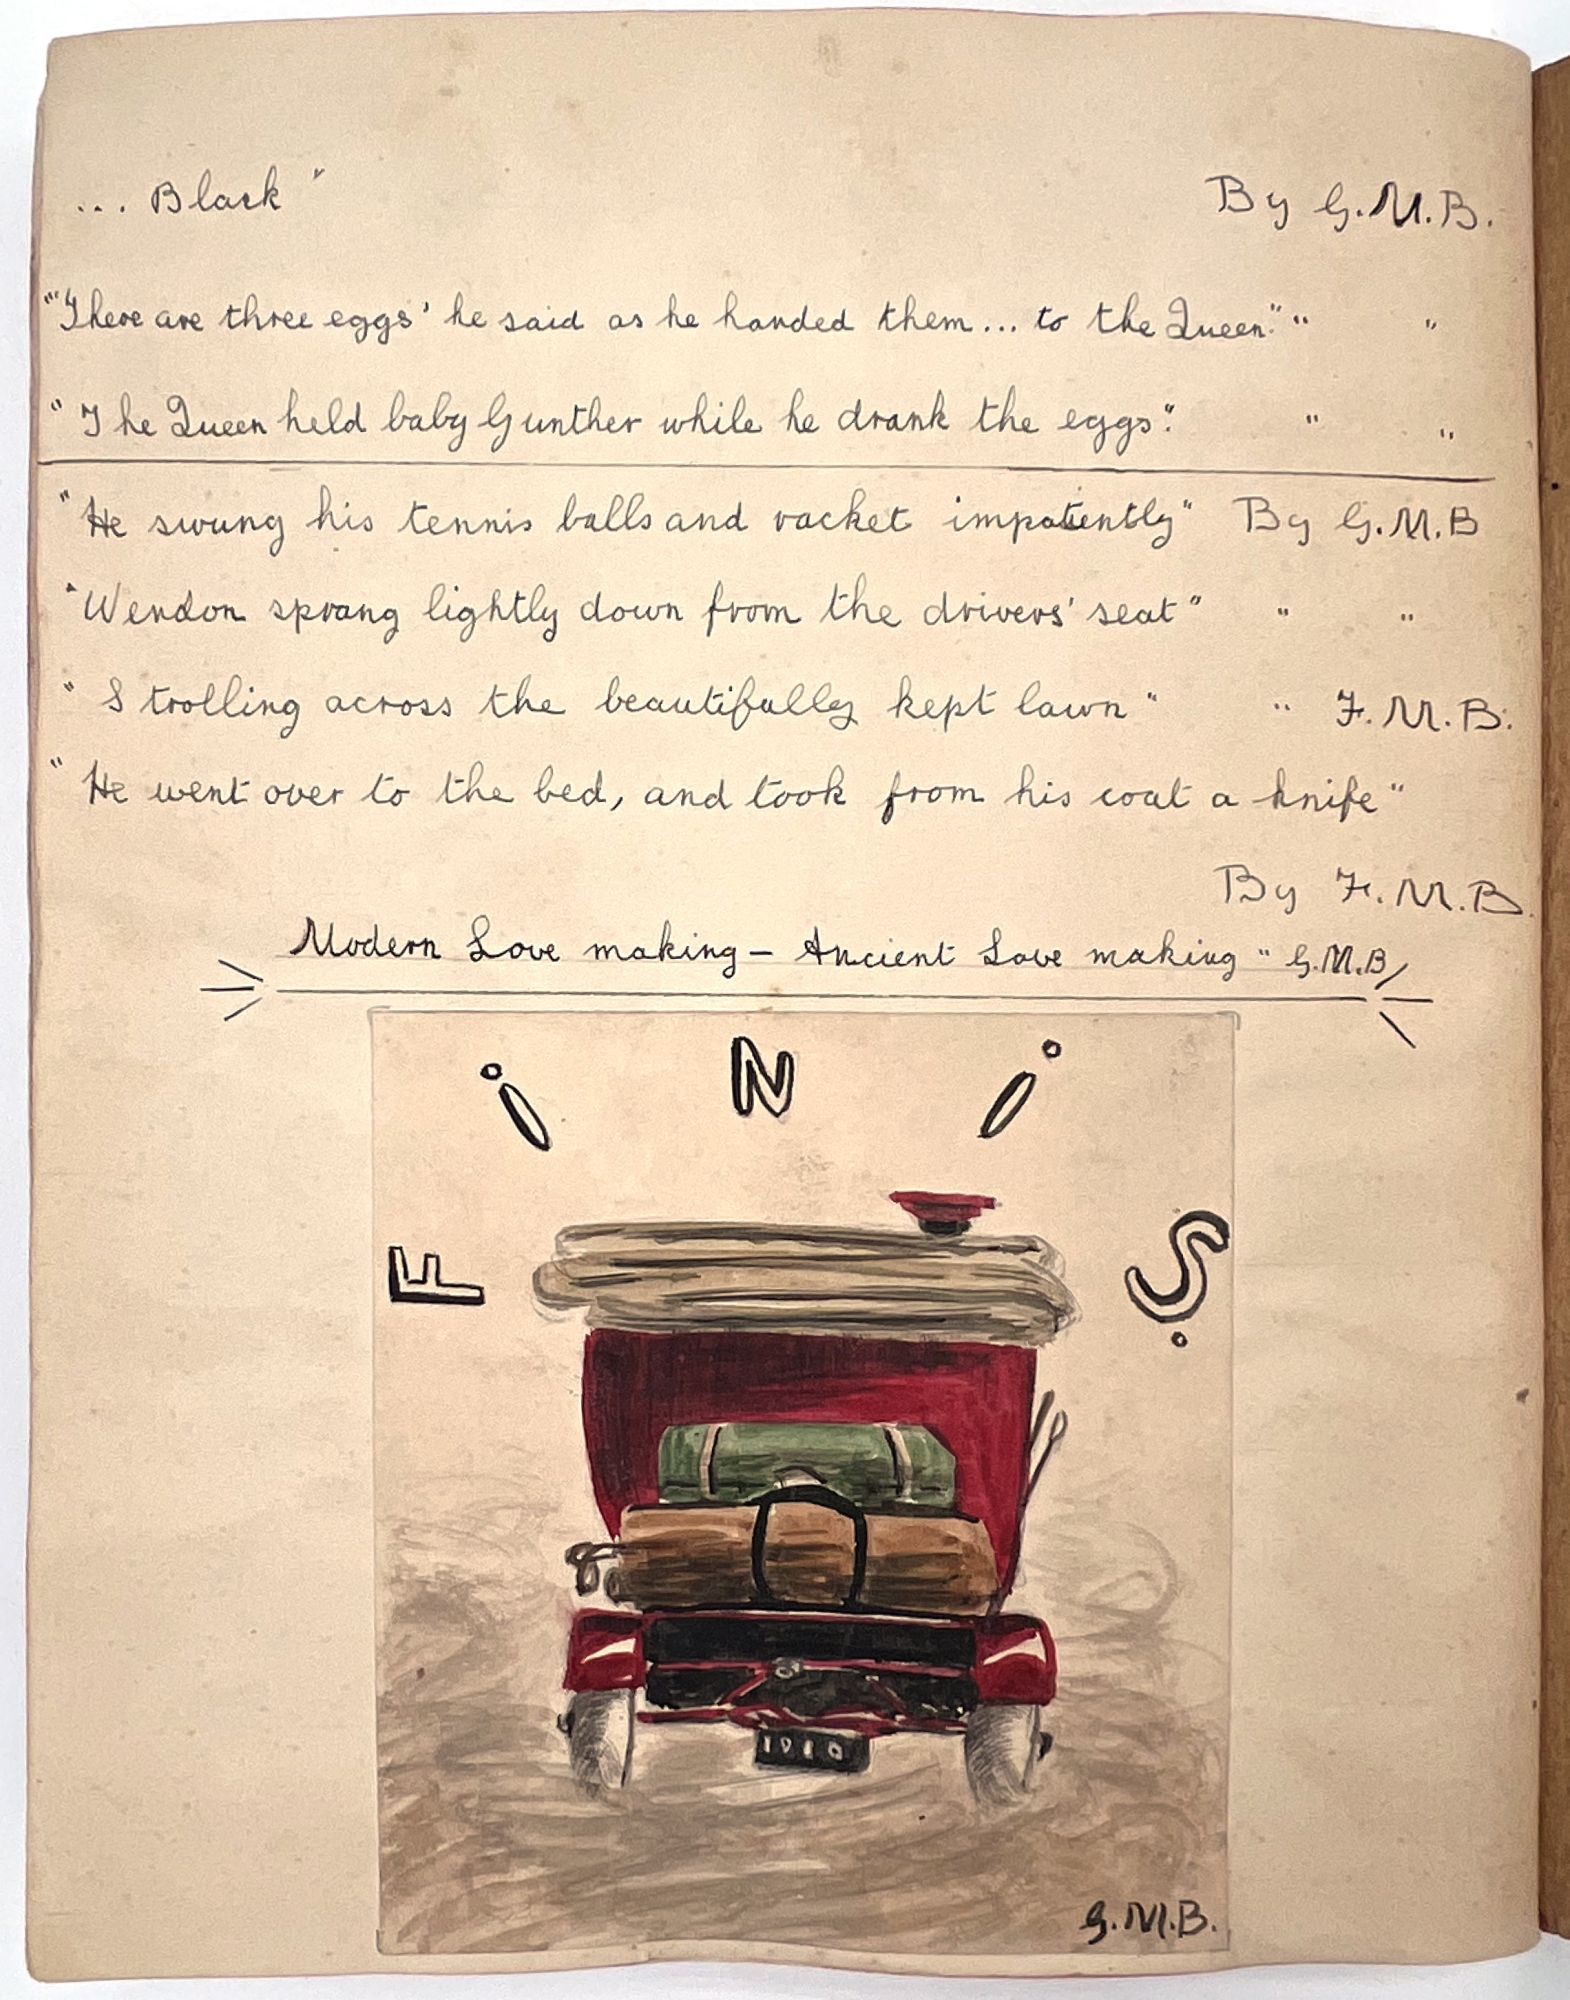 ... Black" By G.M.B.
"'There are three eggs' he said as he handed them... to the Queen." " "
"The Queen held baby Gunther while he drank the eggs." " "
"He swung his tennis balls and racket impatiently" By G.M.B
"Wendon sprang lightly down from the drivers' seat" " "
"Strolling across the beautifully kept lawn" " F.M.B.
"He went over to the bed, and took from his coat a knife"
By F.M.B.
Modern Love making - Ancient Love making" G.M.B
FiNiS.
1010
G.M.B.